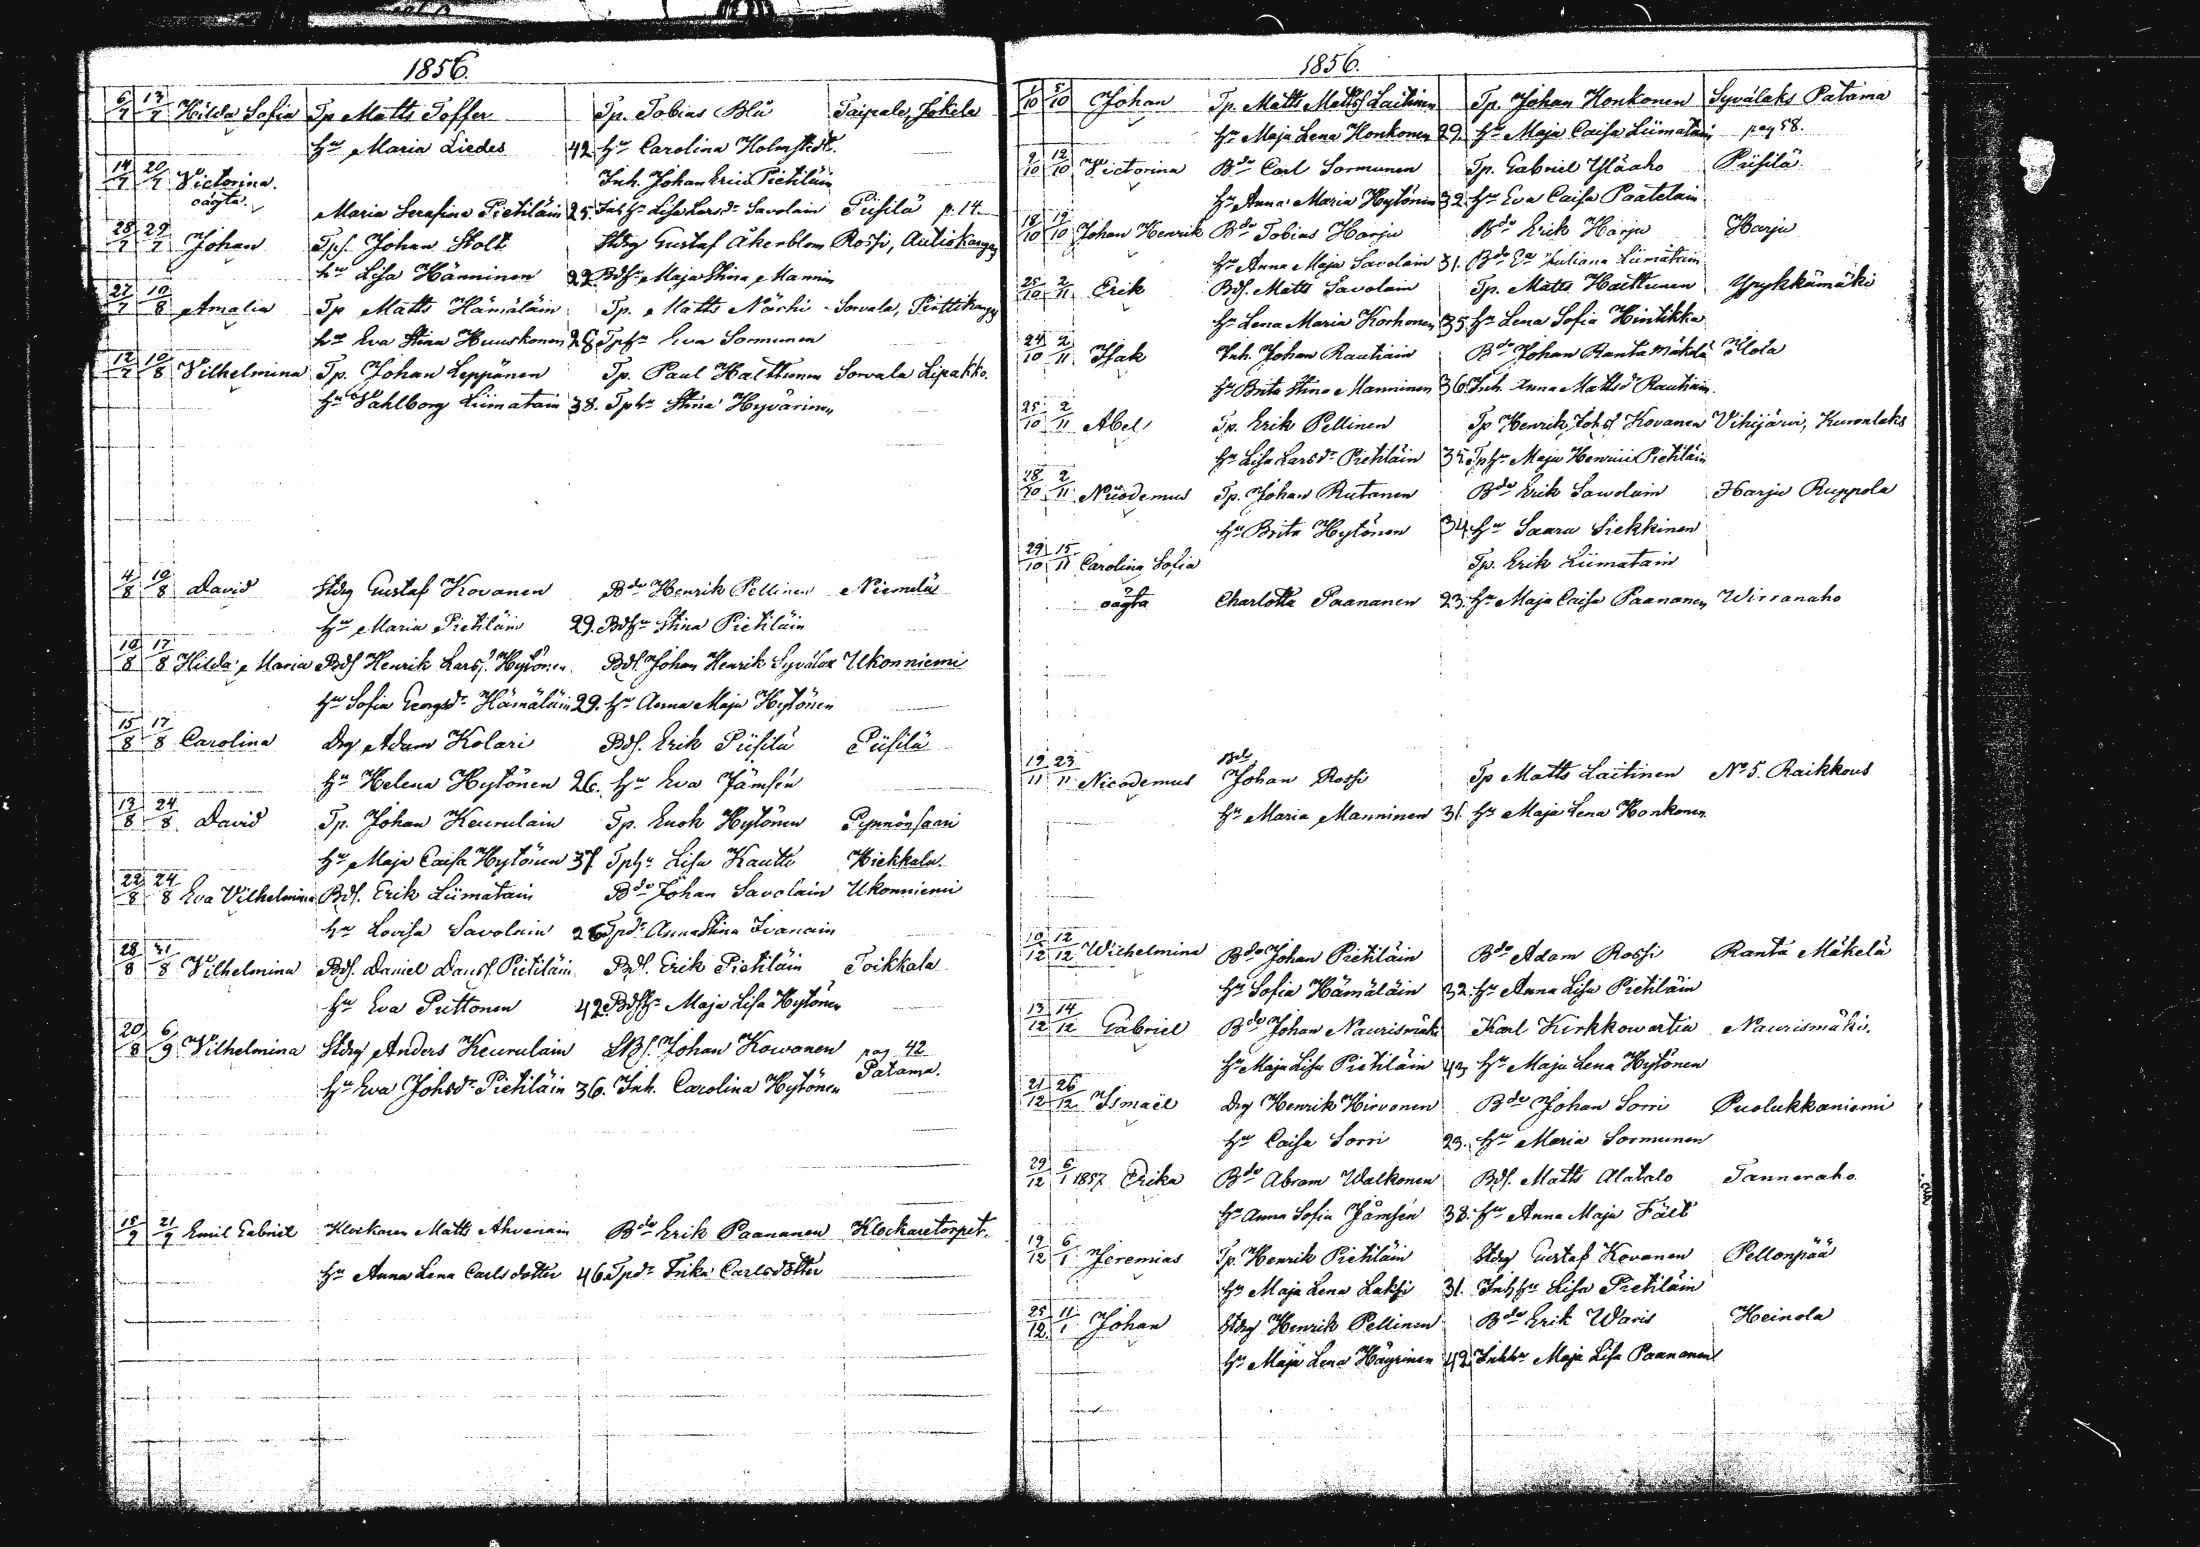 1856.
6/7 13/7 Hilda Sofia Tp Matts Toffer Tp. Tobias Blå Taipale, Jokela
hu Maria Liedes 42. hu Carolina Holmstedt.
14/7 20/7 Victorina. Inh. Johan Ericss Pietiläin
oägta. Maria Serafina Pietiläin 25. Inhhu Lisa Larsdr Savolain Piisilä p. 14
28/7 29/7 Johan Tps. Johan Stolt Stdrg Gustaf Åkerblom Rossi, Autiokangas
hu Lisa Hänninen 22. Bdshu Maja Stina Mannin
27/7 10/8 Amalia Tp Matts Hämäläin Tp. Matts Närhi Sorvala, Penttikangas
hu Eva Stina Huuskonen 26 Tphu Eva Sormunen
12/7 10/8 Vilhelmina Tp. Johan Leppänen Tp. Paul Halttunen Sorvala Lipakko.
hu Wahlborg Liimatain 38. Tphu Stina Hyvärinen
4/8 10/8 David Stdrg Gustaf Kovanen Bde Henrik Pellinen Niemelä
hu Maria Pietiläin 29. Bdhu Stina Pietiläin
10/8 17/8 Hilda Maria Bds Henrik Larss. Hytönen Bds. Johan Henrik Syvälax Ukonniemi
hu Sofia Georgsdr Hämäläin 29. hu Anna Maja Hytönen
15/8 17/8 Carolina Drg Adam Kolari Bds. Erik Piisilä Piisilä
hu Helena Hytönen 26. hu Eva Jämsén
13/8 24/8 David Tp. Johan Keurulain Tp. Enok Hytönen Pynnönsaari
hu Maja Caisa Hytönen 37. Tphu Lisa Kautto Hiekkala.
22/8 24/8 Eva Vilhelmina Bds. Erik Liimatain Bde Johan Savolain Ukonniemi
hu Lovisa Savolain 26 Tpdr Anna Stina Ivanain
28/8 31/8 Vilhelmina Bds. Daniel Danss. Pietiläin Bds. Erik Pietiläin Toikkala
hu Eva Puttonen 42. Bdshu Maja Lisa Hytönen
20/8 6/9 Vilhelmina Stdrg Anders Keurulain Johan Kowanen pag 42
hu Eva Johsdr Pietiläin 36. Inh. Carolina Hytönen Patama.
15/9 21/9 Emil Gabriel Klockaren Matts Ahvenain Bde Erik Paananen Klockaretorpet.
hu Anna Lena Carlsdotter 46 Tpdr Erika Carlsdotter
1856.
1/10 5/10 Johan Tp. Matts Mattss Laitinen Tp. Johan Honkonen Syvälaks Patama
hu Maja Lena Honkonen 29. hu Maja Caisa Liimatain pag 58.
9/10 12/10 Victorina Bde Carl Sormunen Tp. Gabriel Yläaho Piisilä
hu Anna Maria Hytönen 32. hu Eva Caisa Paatelain
18/10 19/10 Johan Henrik Bde Tobias Harju Bde Erik Harju Harju
hu Anna Maja Savolain 31. Juliana Liimatain
25/10 2/11 Erik Bds. Matts Savolain Tp. Matts Halttunen Yrykkämäki
hu Lena Maria Korhonen 35. hu Lena Sofia Hintikka
24/10 2/11 Isak Inh. Johan Rautiain Bde Johan Ranta Mäkelä Ilola
hu Brita Stina Manninen 36. Inh. Anna Mattsdr Rautiain.
25/10 2/11 Abel Tp. Erik Pellinen Tp Henrik Johss Kovanen Vihijärvi, Kuronlaks
hu Lisa Larsdr Pietiläin 35. Tphu Maja Henrics Pietiläin
28/10 2/11 Nicodemus Tp. Johan Rutanen Bde Erik Sawolain Harju Ruppola
hu Brita Hytönen 34. hu Saara Siekkinen
29/10 15/11 Carolina Sofia Tp. Erik Liimatain
oägta Charlotta Paananen 23. hu Maja Caisa Paananen Wirranaho
19/11 23/11 Nicodemus Bds Johan Rossi Tp Matts Laitinen No 5. Raikkous
hu Maria Manninen 31 hu Maja Lena Honkonen
10/12 12/12 Wilhelmina Bde Johan Pietiläin Bde Adam Rossi Ranta Mäkelä
hu Sofia Hämäläin 32. hu Anna Lisa Pietiläin
13/12 14/12 Gabriel Bde Johan Naurismäki Karl Kirkkowartia Naurismäki.
hu Maja Lisa Pietiläin 43 hu Maja Lena Hytönen
21/12 26/12 Ismaël Drg Henrik Hirvonen Bde Johan Sorri Puolukkaniemi
hu Caisa Sorri 23. hu Maria Sormunen
29/12 6/1 1857 Erika Bde Abram Walkonen Bds. Matts Alatalo Tanneraho.
hu Anna Sofia Jämsén 38. hu Anna Maja Fält
19/12 6/1 Jeremias Tp. Henrik Pietiläin Stdrg Gustaf Kovanen Pellonpää
hu Maja Lena Laksi 31. Inhhu Lisa Pietiläin
25/12 11/1 Johan Stdrg Henrik Pellinen Bde Erik Waris Heinola
hu Maja Lena Häyrinen 42. Inhhu Maja Lisa Paananen